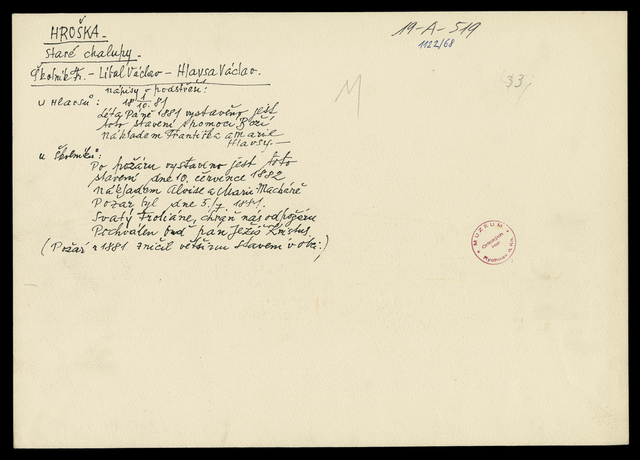 HROŠKA.
19-A-519
1122/68
staré chalupy.
Školník Fr. - Líbal Václav - Hlavsa Václav.
M
33,
nápisy v podstřeší:
u Hlavsů: 18 1/10. 81
Léta Páně 1881 vystavěno jest
toto stavení s pomocí Boží
Nákladem Františka a Marie
Hlavsy.—
u Školníků:
Po požáru vystavíno jest toto
stavení dne 10. července 1882
Nákladem Aloise a Marie Macháně
Požár byl dne 5./7 1881.
Svatý Froliáne, chraň nás od požáru
Pochválen buď pán Ježíš Kristus.
(Požár r 1881 zničil většinu stavení v obci.)
MUZEUM
Orlických
hor
Rychnov n. Kn.